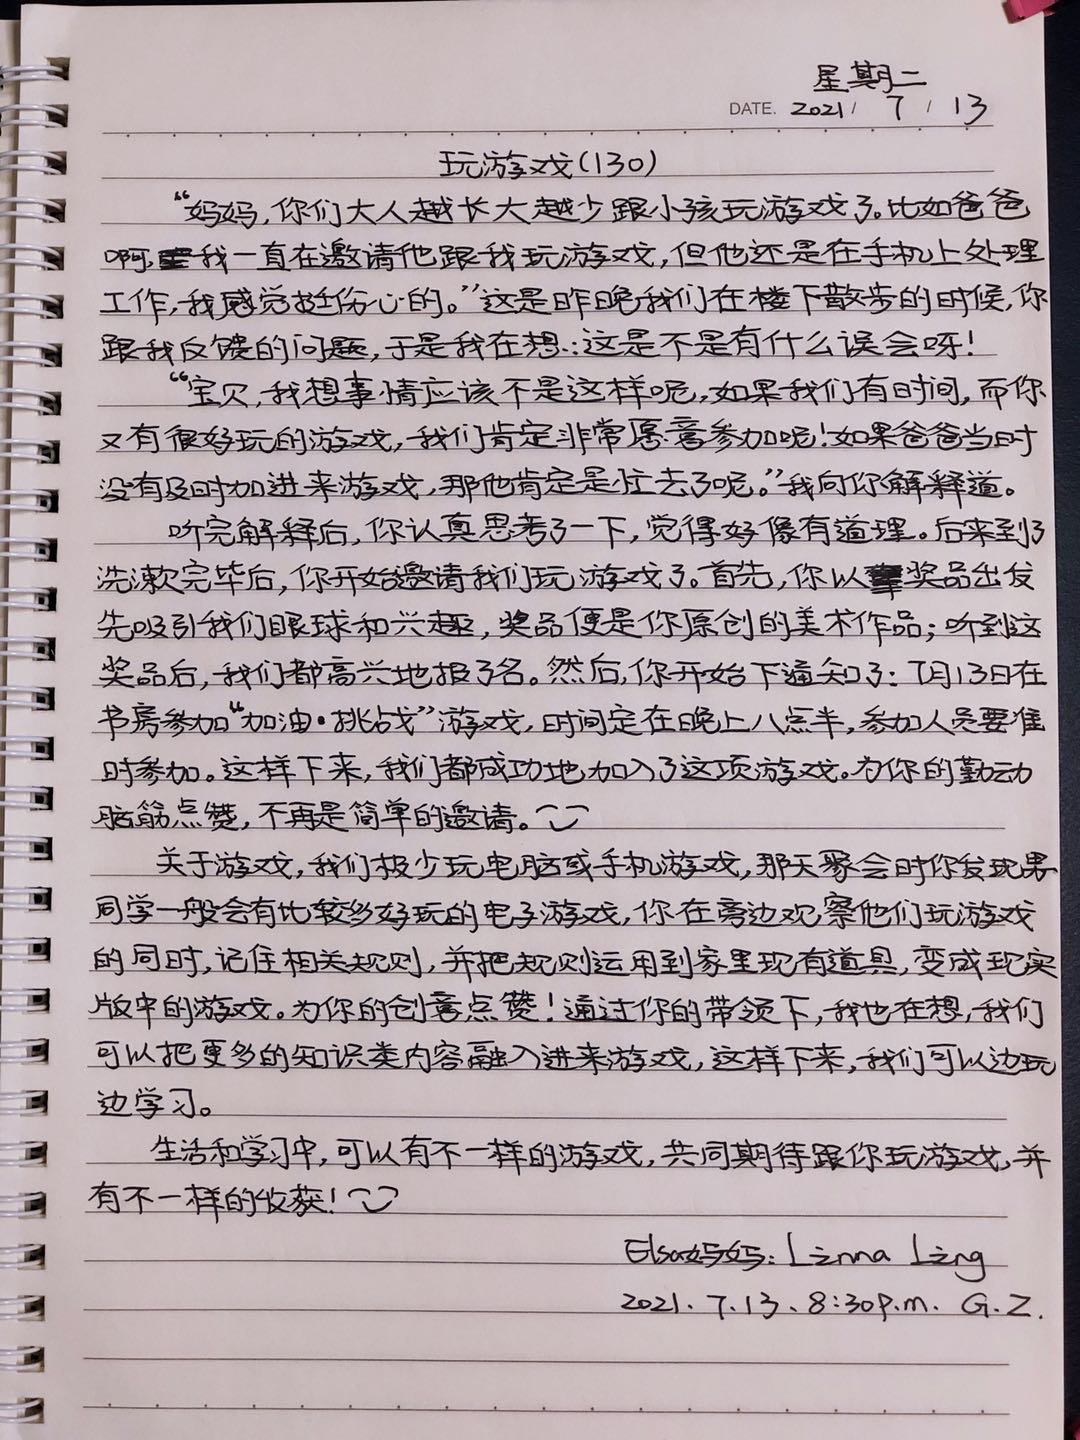 星期二
DATE. 2021 / 7 / 13
玩游戏(130)
“妈妈,你们大人越长大越少跟小孩玩游戏了。比如爸爸
啊,我一直在邀请他跟我玩游戏,但他还是在手机上处理
工作,我感觉挺伤心的。”这是昨晚我们在楼下散步的时候,你
跟我反馈的问题,于是我在想:这是不是有什么误会呀!
“宝贝,我想事情应该不是这样呢,如果我们有时间,而你
又有很好玩的游戏,我们肯定非常愿意参加呢!如果爸爸当时
没有及时加进来游戏,那他肯定是忙去了呢。”我向你解释道。
听完解释后,你认真思考了一下,觉得好像有道理。后来到了
洗漱完毕后,你开始邀请我们玩游戏了。首先,你以奖品出发
先吸引我们眼球和兴趣,奖品便是你原创的美术作品;听到这
奖品后,我们都高兴地报了名。然后,你开始下通知了:7月13日在
书房参加“加油·挑战”游戏,时间定在晚上八点半,参加人员要准
时参加。这样下来,我们都成功地加入了这项游戏。为你的勤动
脑筋点赞,不再是简单的邀请。
关于游戏,我们极少玩电脑或手机游戏,那天聚会时你发现果
同学一般会有比较多好玩的电子游戏,你在旁边观察他们玩游戏
的同时,记住相关规则,并把规则运用到家里现有道具,变成现实
版中的游戏。为你的创意点赞!通过你的带领下,我也在想,我们
可以把更多的知识类内容融入进来游戏,这样下来,我们可以边玩
边学习。
生活和学习中,可以有不一样的游戏,共同期待跟你玩游戏,并
有不一样的收获!
Elsa妈妈:Linna Ling
2021.7.13.8:30p.m. G.Z.